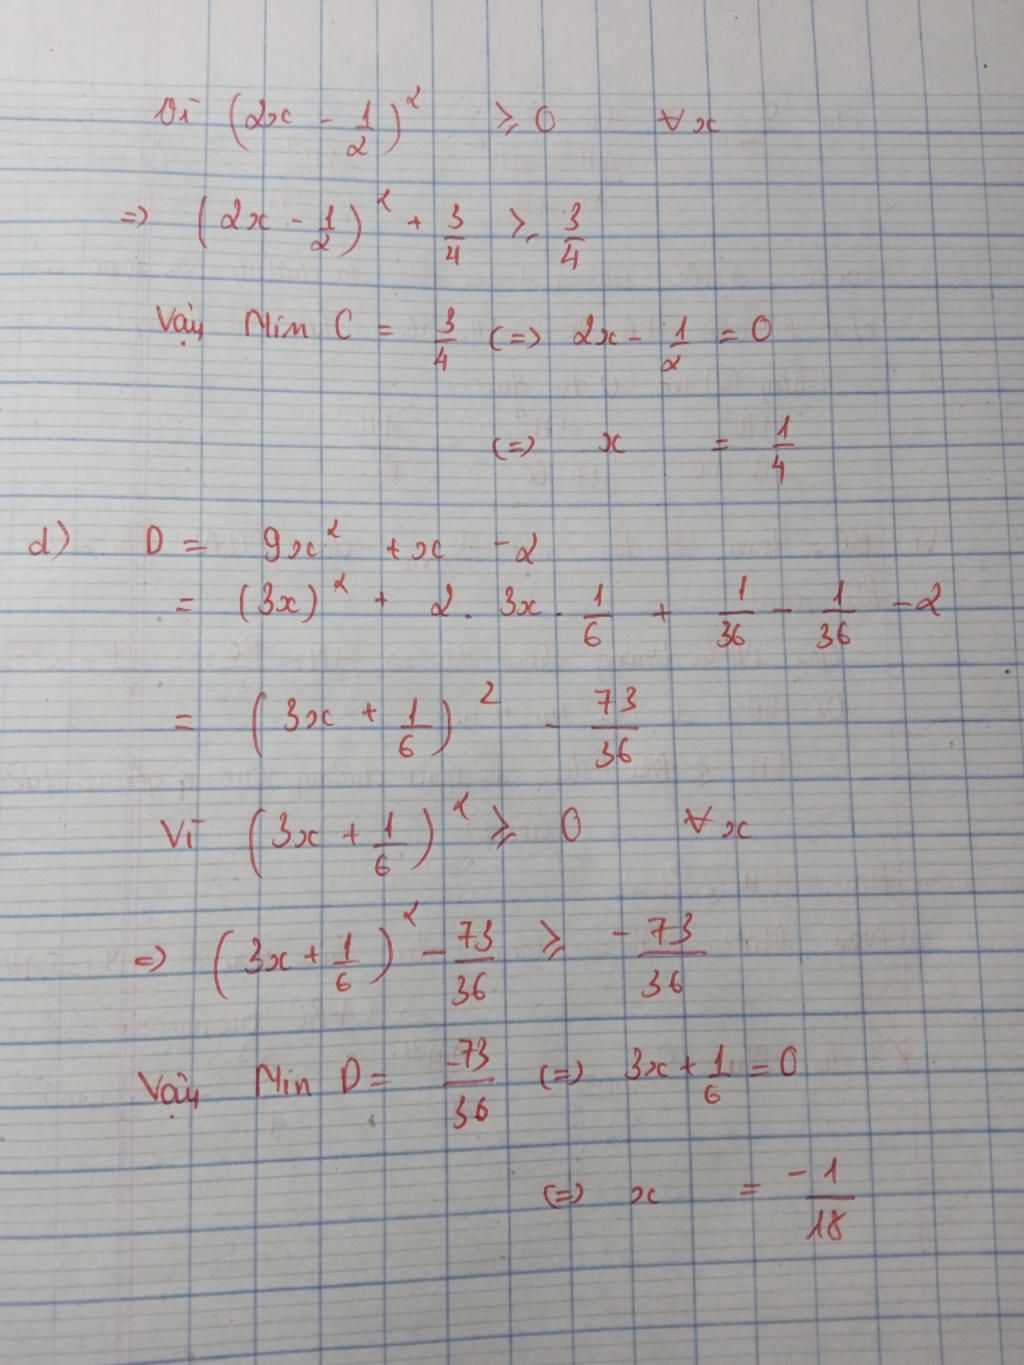 Vì (2x - 1/2)² ≥ 0 ∀x
=> (2x - 1/2)² + 3/4 ≥ 3/4
Vậy Min C = 3/4 (=) 2x - 1/2 = 0
(=) x = 1/4
d) D = 9x² + x - 2
= (3x)² + 2 . 3x . 1/6 + 1/36 - 1/36 - 2
= (3x + 1/6)² - 73/36
Vì (3x + 1/6)² ≥ 0 ∀x
=> (3x + 1/6)² - 73/36 ≥ -73/36
Vậy Min D = -73/36 (=) 3x + 1/6 = 0
(=) x = -1/18